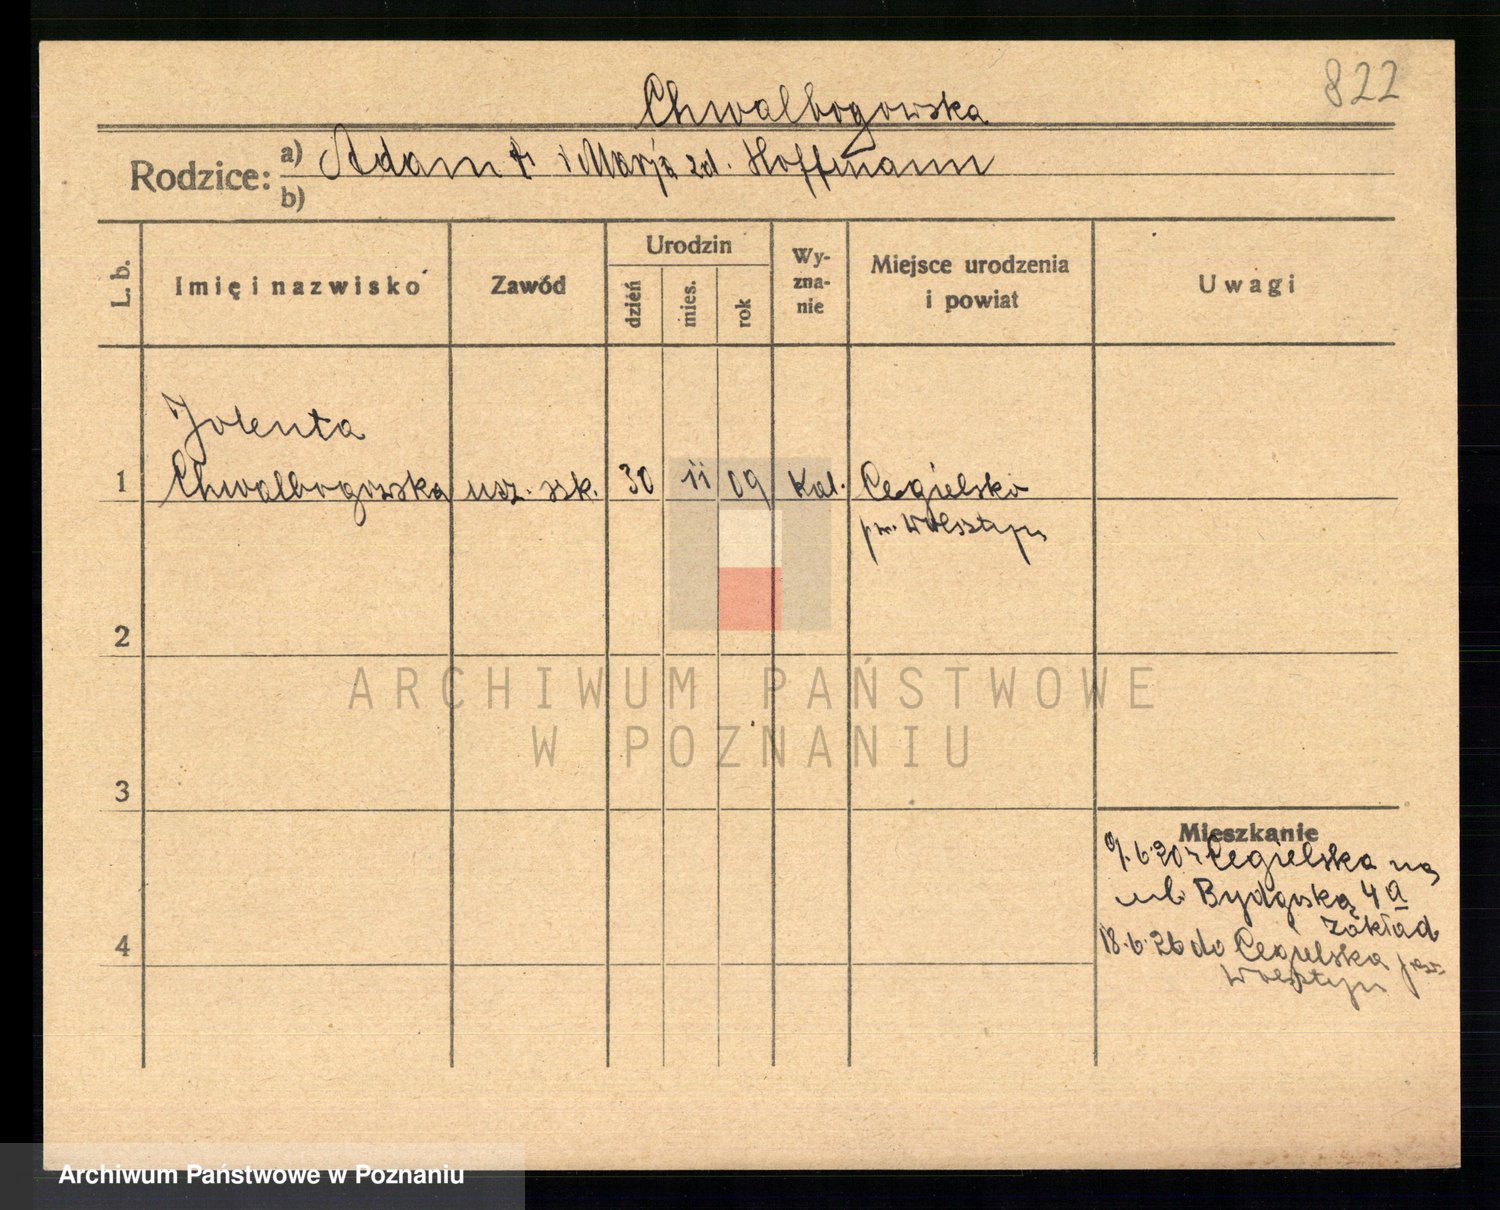 822
Chwalbogowska
Rodzice: a) Adam † i Marja zd. Hoffmann
b)
L. b.
Imię i nazwisko
Zawód
Urodzin
dzień
mies.
rok
Wy-
zna-
nie
Miejsce urodzenia
i powiat
Uwagi
Jolenta
1 Chwalbogowska ucz. szk. 30 11 09 Kat. Cegielsko
pow. Wolsztyn
2
3
4
ARCHIWUM PAŃSTWOWE
W POZNANIU
Mieszkanie
9.6.20 z Cegielska na
ul. Bydgoską 4a
zakład
18.6.26 do Cegielska pow.
Wolsztyn
Archiwum Państwowe w Poznaniu